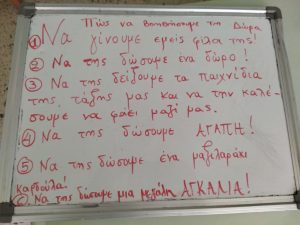 Πώς να βοηθήσουμε την Δώρα
① Να γίνουμε εμείς φίλα της!
② Να της δώσουμε ένα δώρο!
③ Να της δείξουμε τα παιχνίδια
της, τάξης μας και να την καλέ-
σουμε να φάει μαζί μας.
④ Να της δώσουμε ΑΓΑΠΗ!
⑤ Να της δώσουμε ένα μαξιλαράκι
καρδούλα!
⑥ Να της δώσουμε μια μεγάλη ΑΓΚΑΛΙΑ!